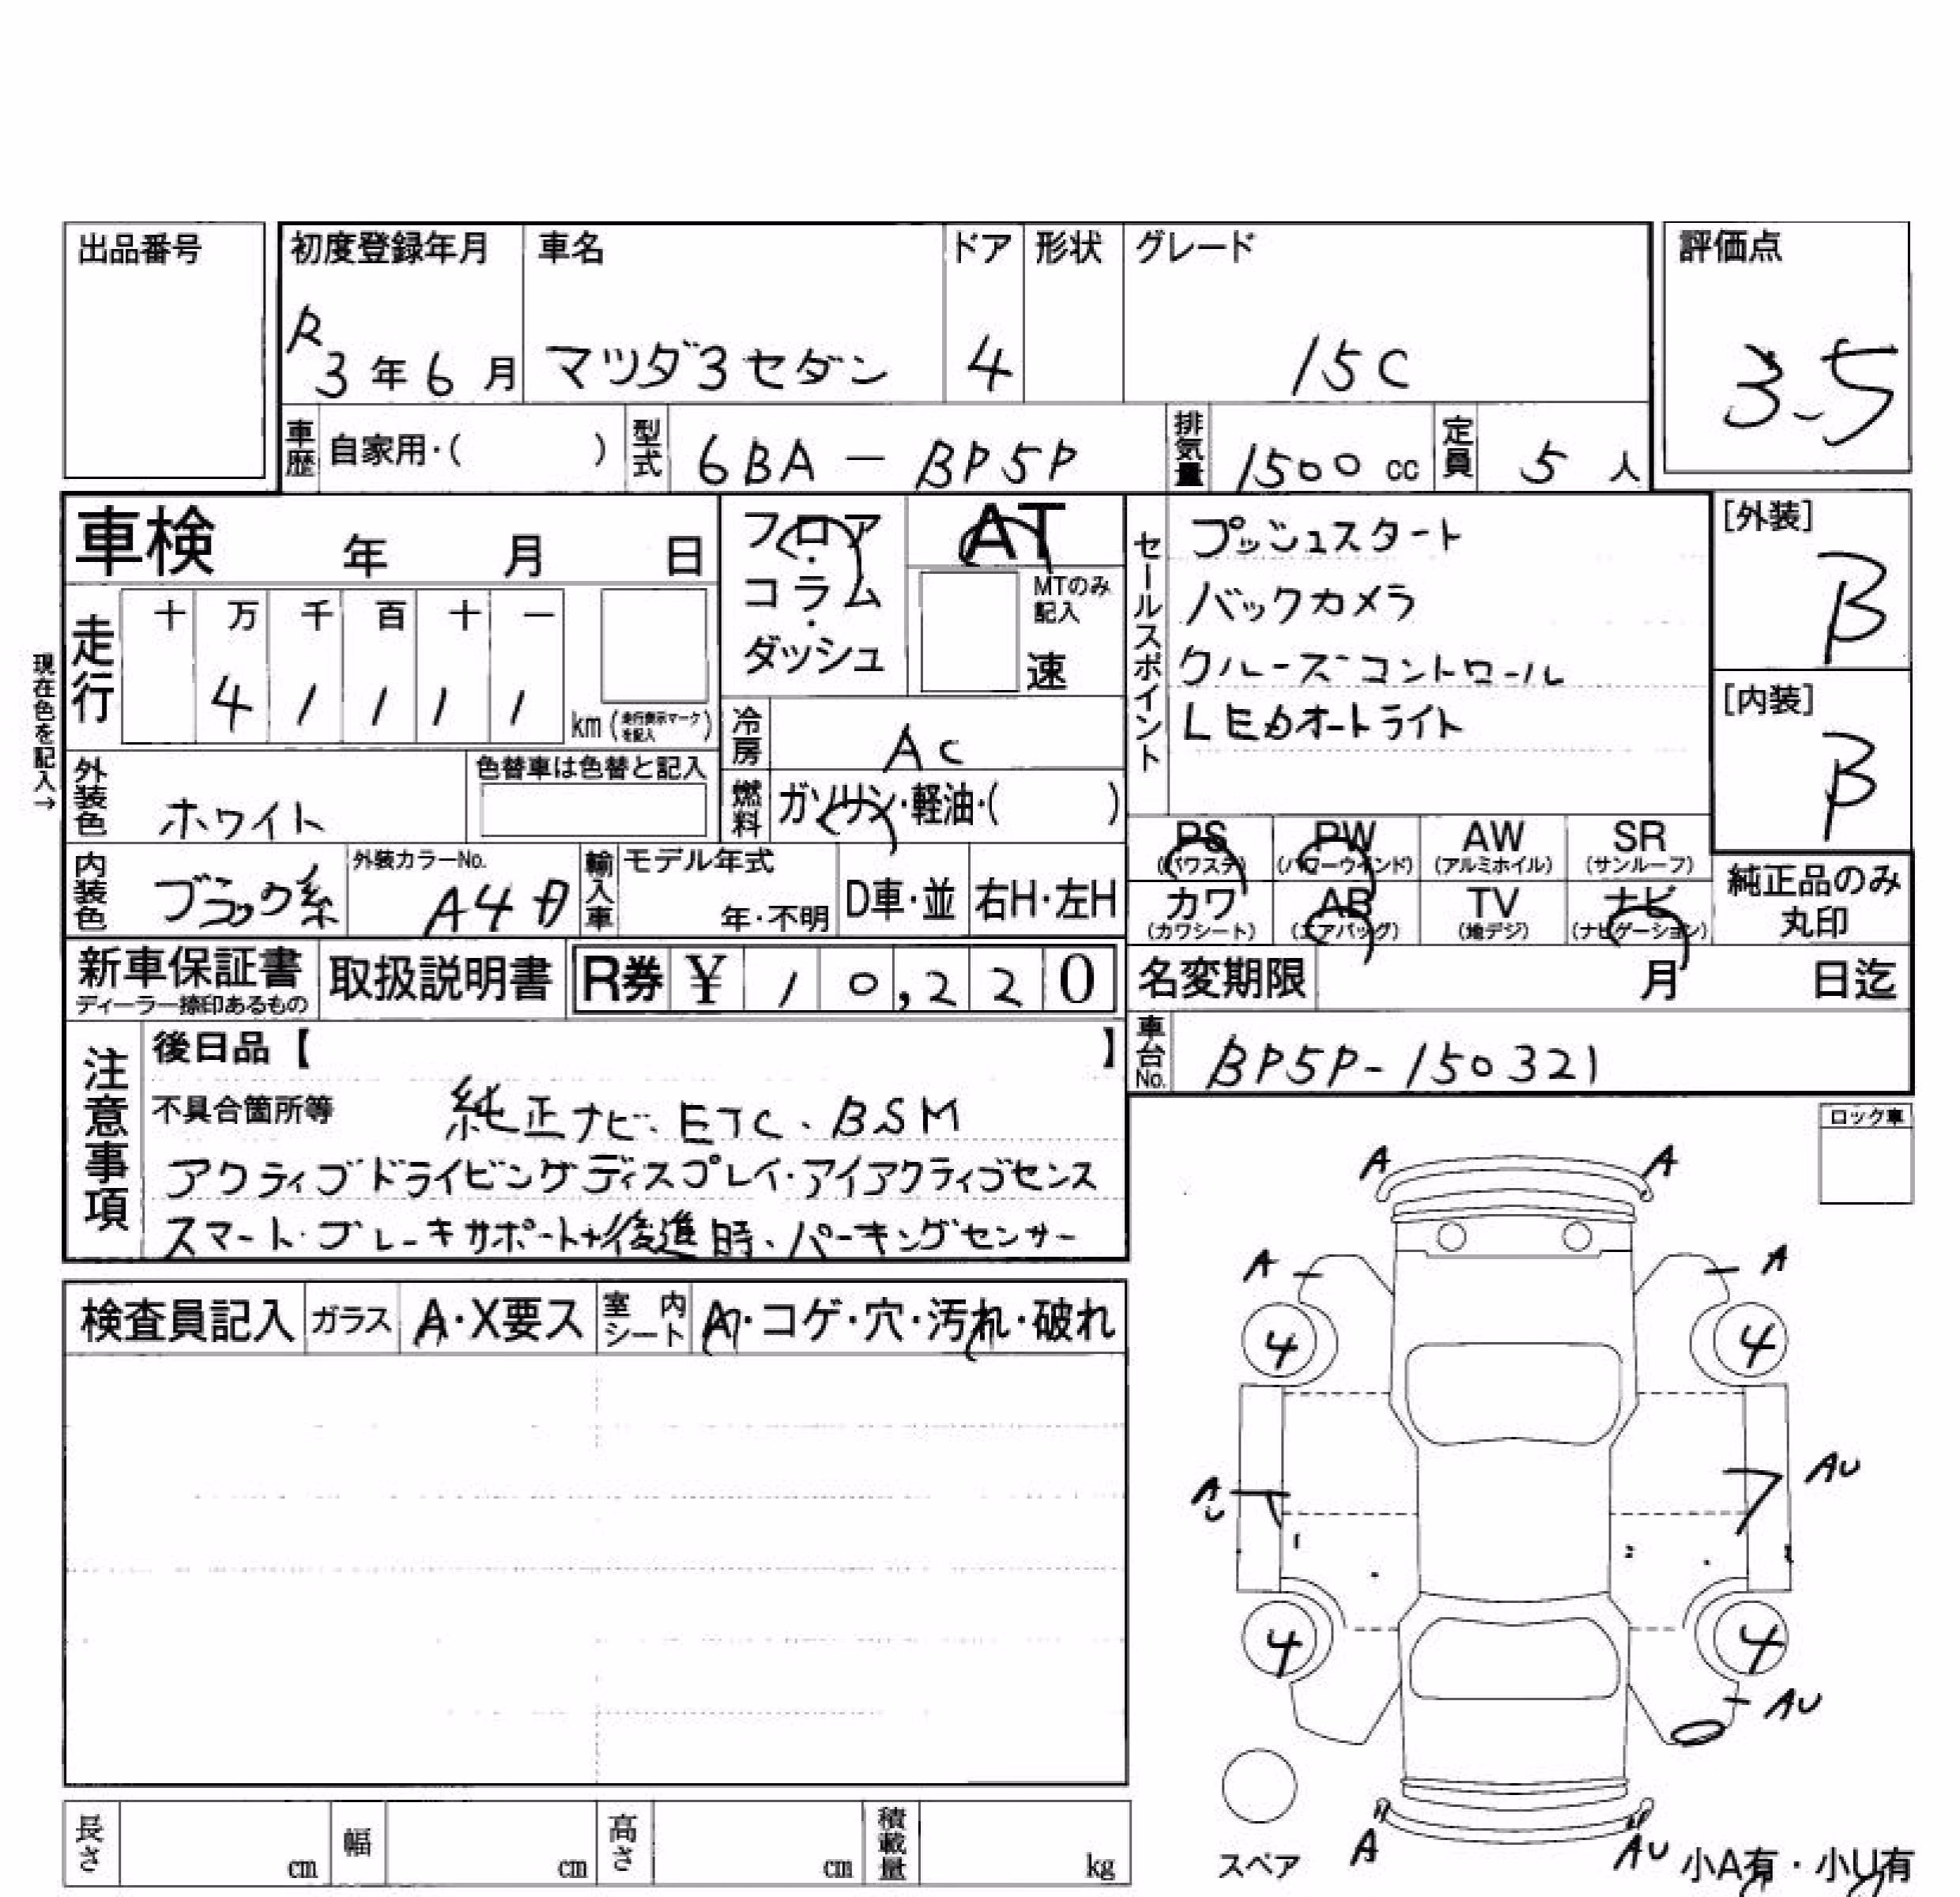 出品番号
初度登録年月 車名 ドア 形状 グレード 評価点
R3年6月 マツダ3セダン 4 15C 3.5
車歴 自家用・( ) 型式 6BA-BP5P 排気量 1500cc 定員 5人
車検 年 月 日
フロア・コラム・ダッシュ
AT
MTのみ記入
速
セールスポイント
プッシュスタート
バックカメラ
クルーズコントロール
LEDオートライト
[外装]
B
[内装]
B
現在色を記入→
走行 十 万 千 百 十 一
4 1 1 1 1 km(走行表示マークを記入)
冷房 AC
外装色 ホワイト 色替車は色替と記入
燃料 ガソリン・軽油・( )
PS PW AW SR
(パワステ) (パワーウインド) (アルミホイル) (サンルーフ)
カワ AB TV ナビ
(カワシート) (エアバッグ) (地デジ) (ナビゲーション)
純正品のみ丸印
内装色 ブラック系 外装カラーNo. A4D 輸入車 モデル年式 年・不明 D車・並 右H・左H
新車保証書 取扱説明書 R券 ¥10,220
ディーラー捺印あるもの
名変期限 月 日迄
車台No. BP5P-150321
注意事項
後日品【 】
不具合箇所等 純正ナビ、ETC、BSM
アクティブドライビングディスプレイ・アイアクティブセンス
スマート・ブレーキサポート+後進時、パーキングセンサー
ロック車
検査員記入 ガラス A・X要ス 室内シート A・コゲ・穴・汚れ・破れ
A A
A A
4 4
AU AU
4 4
AU
スペア A AU 小A有・小U有
長さ cm 幅 cm 高さ cm 積載量 kg